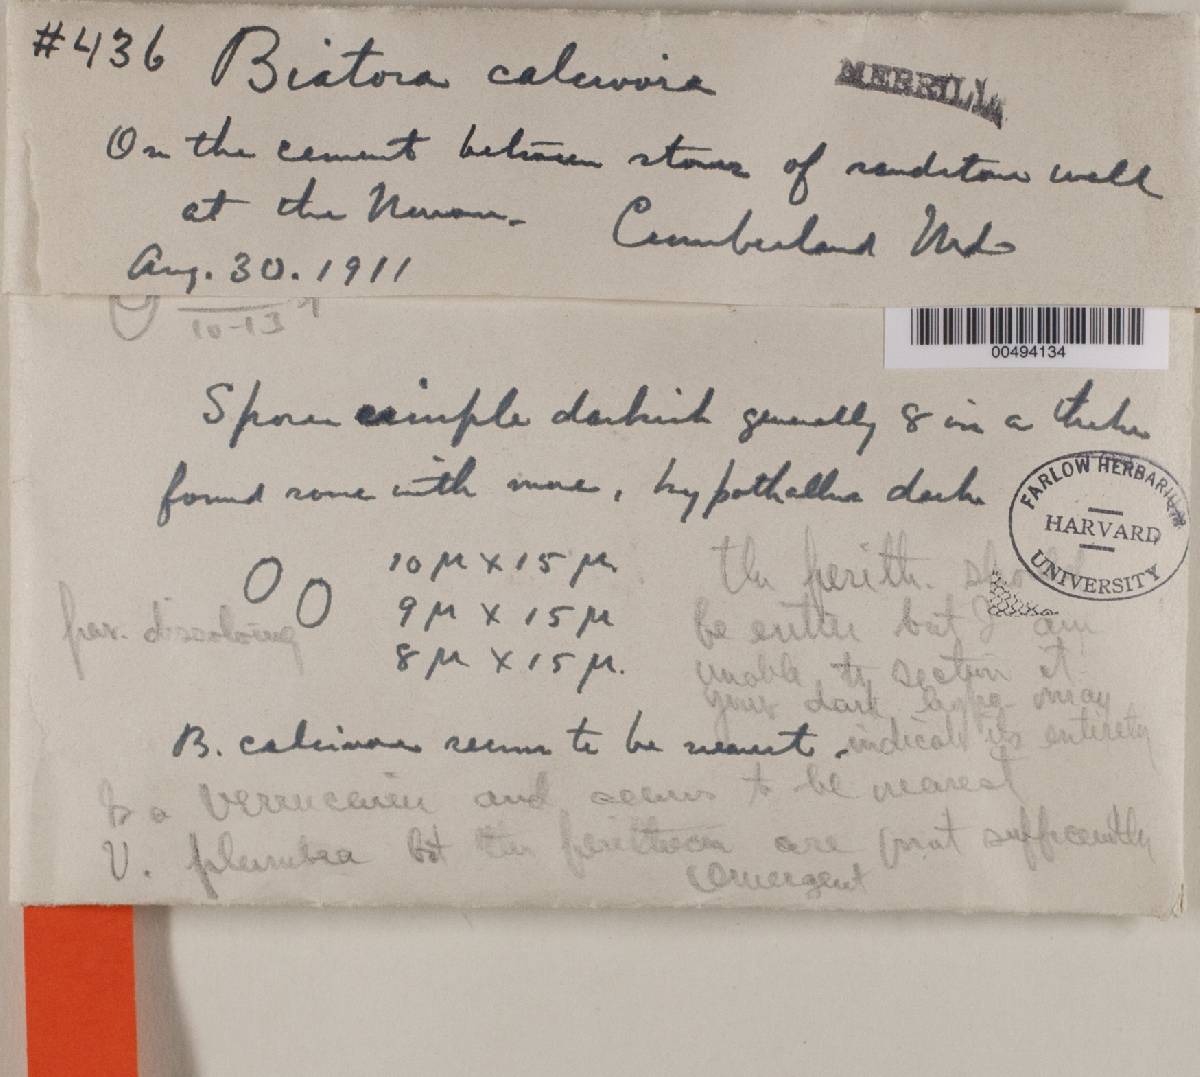 #436 Biatora calcivora
MERRILL
On the cement between stones of sandstone wall
at the Narrows. Cumberland Md
Aug. 30. 1911
10-13
00494134
Spores simple darkish generally 8 in a theke
found some with more, hypothallus dark
FARLOW HERBARIUM
HARVARD
UNIVERSITY
10 µ x 15 µ.
9 µ x 15 µ
8 µ x 15 µ.
par. dissolving
The perith. should
be entire but I am
unable to section it
your dark hypo. may
indicate its entirety
B. calcivora seems to be nearest.
Is a Verrucaria and seems to be nearest
V. plumbea but the perithecia are not sufficiently
emergent